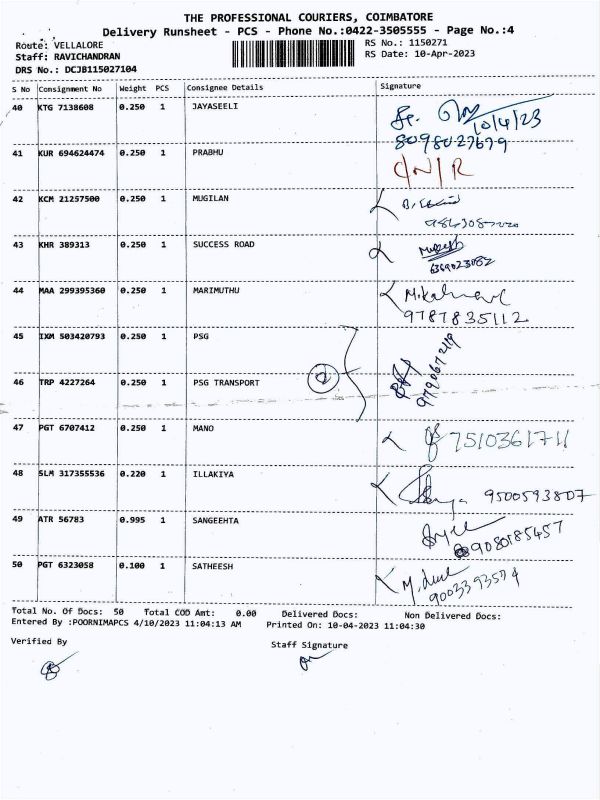 THE PROFESSIONAL COURIERS, COIMBATORE
Delivery Runsheet - PCS - Phone No.:0422-3505555 - Page No.:4
Route: VELLALORE
RS No.: 1150271
Staff: RAVICHANDRAN
RS Date: 10-Apr-2023
DRS No.: DCJB115027104
S No Consignment No Weight PCS Consignee Details Signature
40 KTG 7138608 0.250 1 JAYASEELI
10/4/23
8098027679
41 KUR 694624474 0.250 1 PRABHU
C/N/R
42 KCM 21257500 0.250 1 MUGILAN
43 KHR 389313 0.250 1 SUCCESS ROAD
44 MAA 299395360 0.250 1 MARIMUTHU
9787835112
45 IXM 503420793 0.250 1 PSG
2
9790672119
46 TRP 4227264 0.250 1 PSG TRANSPORT
47 PGT 6707412 0.250 1 MANO
7510361711
48 SLM 317355536 0.220 1 ILLAKIYA
9500593807
49 ATR 56783 0.995 1 SANGEEHTA
9080185457
50 PGT 6323058 0.100 1 SATHEESH
9003393574
Total No. Of Docs: 50 Total COD Amt: 0.00 Delivered Docs: Non Delivered Docs:
Entered By :POORNIMAPCS 4/10/2023 11:04:13 AM Printed On: 10-04-2023 11:04:30
Verified By
Staff Signature